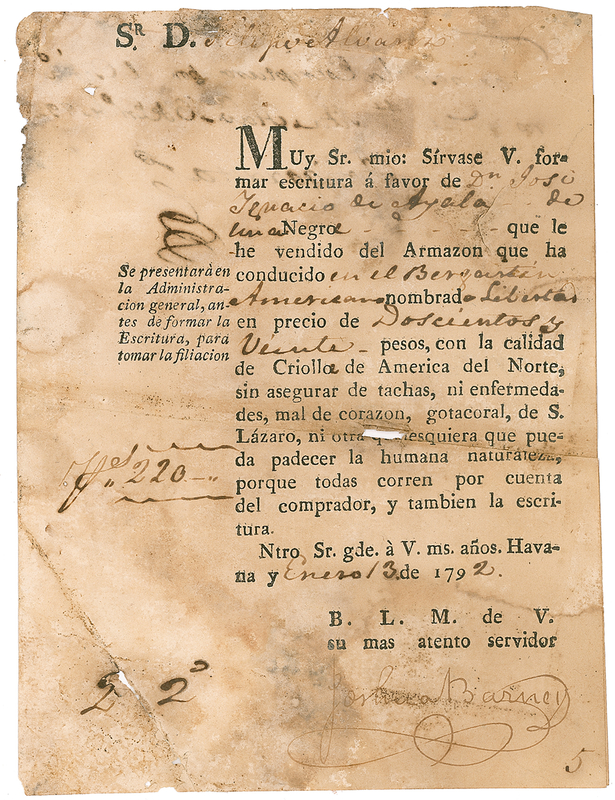 Sr D. Felipe Alvarez
Muy Sr. mio: Sírvase V. for-
mar escritura á favor de Dn. José
Ignacio de Ayala - de
una Negra - - - - - que le
he vendido del Armazon que ha
conducido en el Bergantin
Americano nombrado Libertad
en precio de Doscientos y
Veinte - pesos, con la calidad
de Criolla de America del Norte,
sin asegurar de tachas, ni enfermeda-
des, mal de corazon, gotacoral, de S.
Lázaro, ni otra esquiera que pue-
da padecer la humana naturaleza,
porque todas corren por cuenta
del comprador, y tambien la escri-
tura.
Ntro Sr. gde. à V. ms. años. Hava-
na y Enero 13. de 1792.
B. L. M. de V.
su mas atento servidor
Joshua Barney
Se presentará en
la Administra-
cion general, an-
tes de formar la
Escritura, para
tomar la filiacion
220
2 2
5